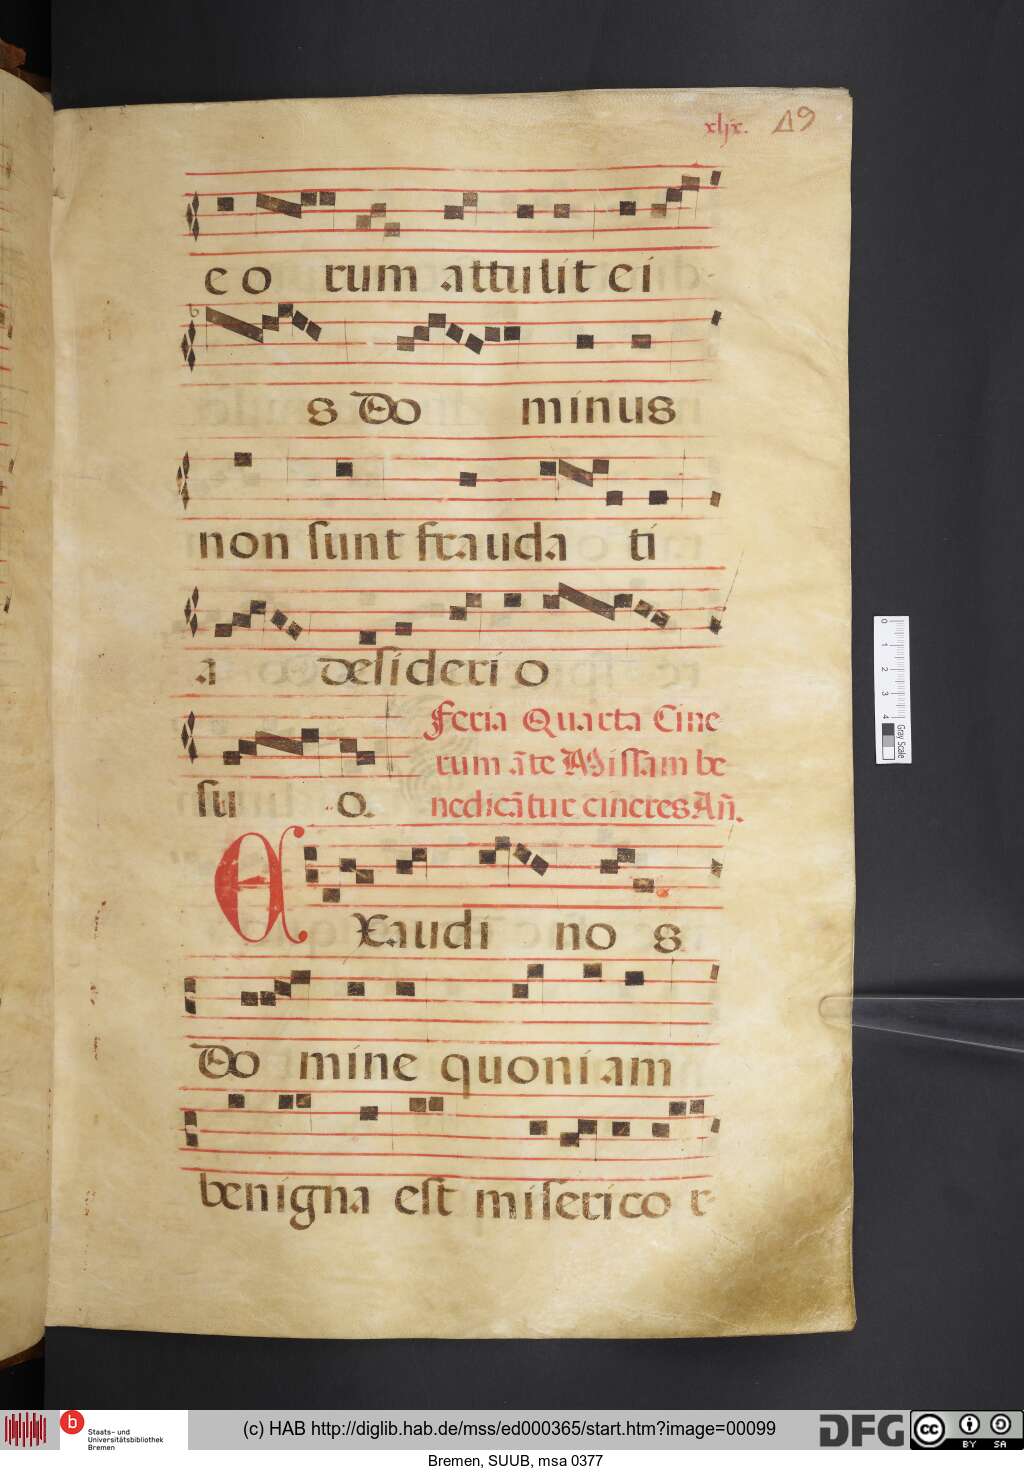 xljx. 49
eo rum attulit ei
s Do minus
non sunt frauda ti
a desideri o
su o.
Feria Quarta Cine
rum āte Missam be
nedicātur cineres Añ.
EXaudi no s
Do mine quoniam
benigna est miserico r
0
1
2
3
4
Gray Scale
b Staats- und
Universitätsbibliothek
Bremen
(c) HAB http://diglib.hab.de/mss/ed000365/start.htm?image=00099
DFG
cc BY SA
Bremen, SUUB, msa 0377